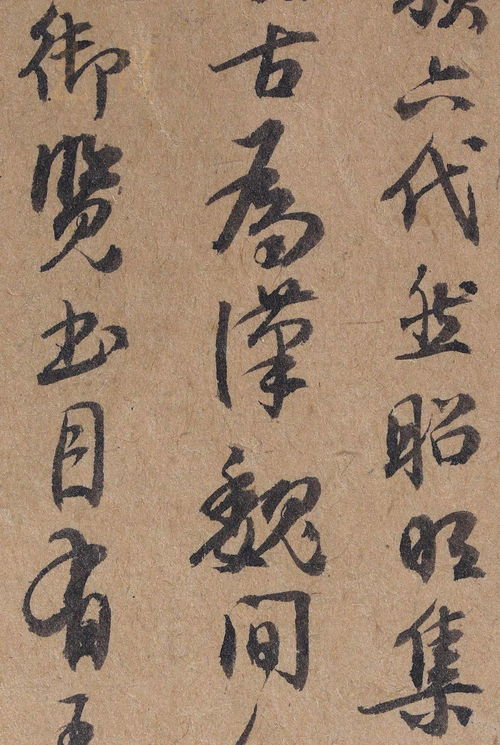 六代然昭明集
古為漢魏間
御覽書目有王